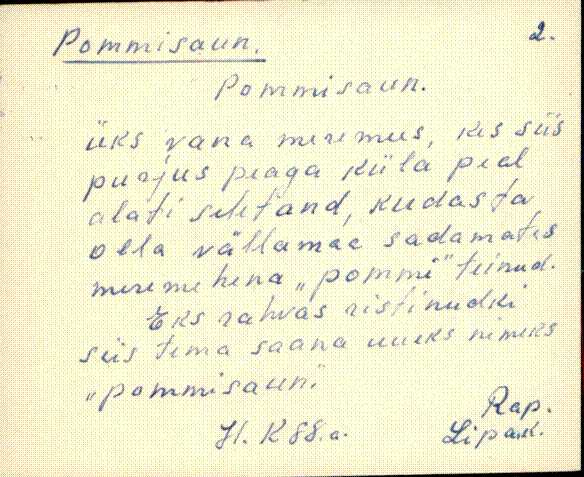 Pommisaun.
2.
Pommisaun.
üks vana meremees, kes siis
purjus peaga küla peal
alati seletand, kudas ta
olla vällamaa sadamates
meremehena „pommi" teinud.
Eks rahvas ristinudki
siis tema saana uueks nimeks
„pommisaun."
H. K 88.a.
Rap.
Lipa.k.